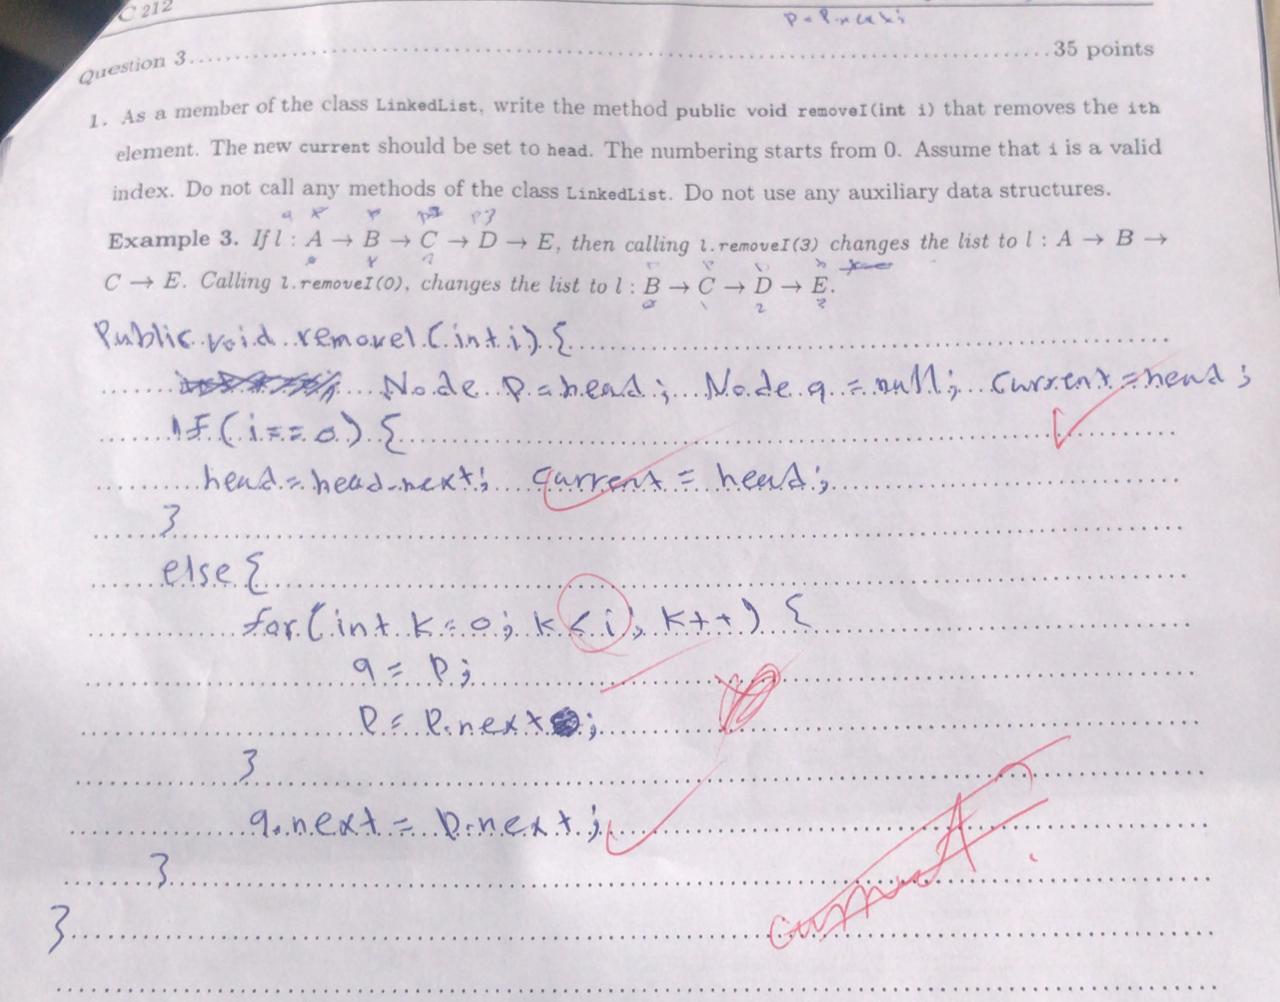 C 212
p = p.next;
Question 3 ........ 35 points
1. As a member of the class LinkedList, write the method public void removeI(int i) that removes the ith
element. The new current should be set to head. The numbering starts from 0. Assume that i is a valid
index. Do not call any methods of the class LinkedList. Do not use any auxiliary data structures.
Example 3. If l : A → B → C → D → E, then calling l.removeI(3) changes the list to l : A → B →
C → E. Calling l.removeI(0), changes the list to l : B → C → D → E.
Public void removeI (int i) {
Node p = head; Node q = null; current = head;
if (i == 0) {
head = head.next; current = head;
}
else {
for (int k = 0; k < i; k++) {
q = p;
p = p.next;
}
q.next = p.next;
}
}
current